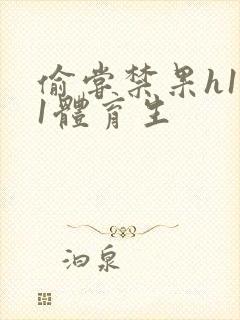 偷嘗禁果h1
1體育生
泊泉